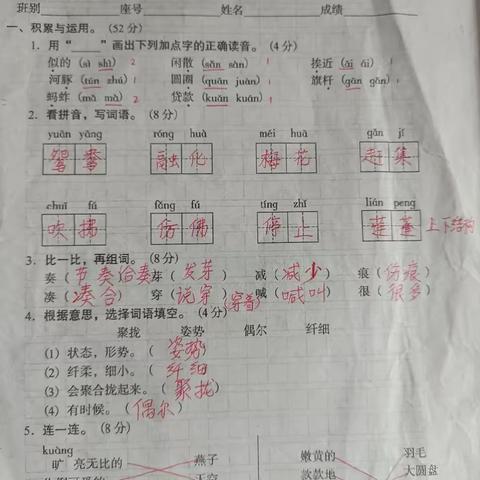 班别 座号 姓名 成绩
一、积累与运用。(52分)
1. 用“____”画出下列加点字的正确读音。(4分)
似的(sì shì) 2 闲散(sǎn sàn) 1 挨近(āi ái) 1
河豚(tún zhú) 1 圆圈(quān juàn) 1 旗杆(gān gǎn) 1
蚂蚱(mā mà) 2 贷款(kuǎn kuān) 1
2. 看拼音，写词语。(8分)
yuān yāng róng huà méi huā gǎn jí
鸳鸯 融化 梅花 赶集
chuī fú fǎng fú tíng zhǐ lián peng
吹拂 仿佛 停止 莲蓬 上下结构
3. 比一比，再组词。(8分)
奏(节奏伯奏) 芽(发芽) 减(减少) 痕(伤痕)
凑(凑合) 穿(说穿)(穿着) 喊(喊叫) 很(很多)
4. 根据意思，选择词语填空。(4分)
聚拢 姿势 偶尔 纤细
(1) 状态，形势。(姿势)
(2) 纤柔，细小。(纤细)
(3) 会聚合拢起来。(聚拢)
(4) 有时候。(偶尔)
5. 连一连。(8分)
kuàng
旷 亮无比的 燕子 嫩黄的 羽毛
天空 款款地 大圆盘